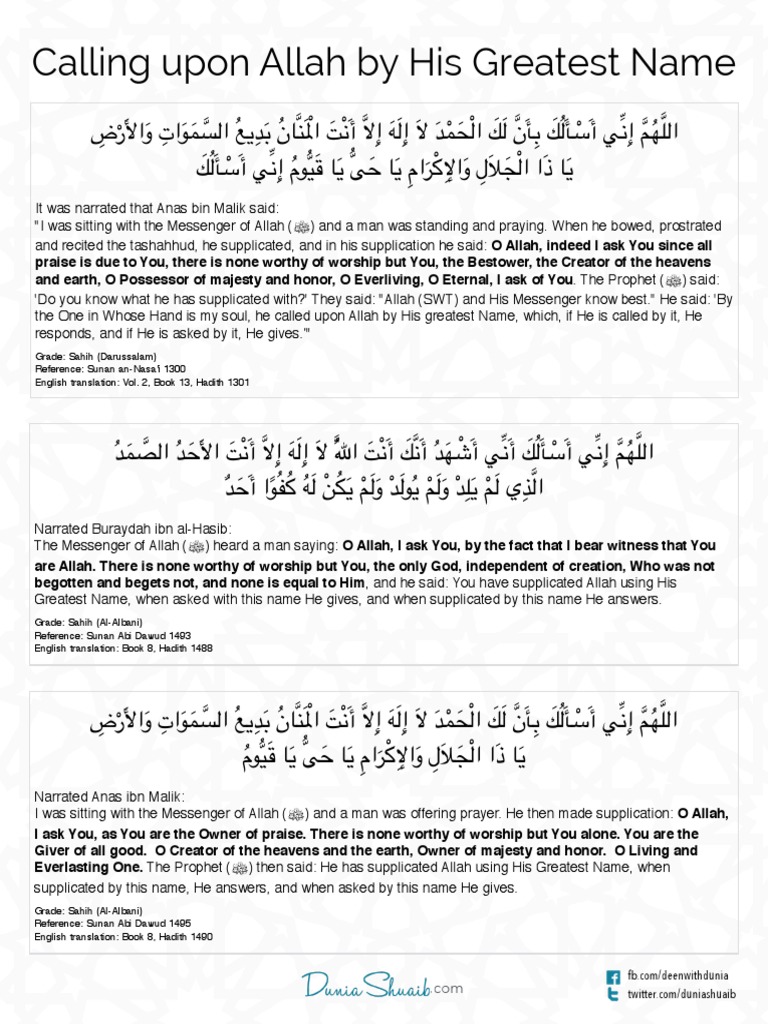 Calling upon Allah by His Greatest Name
اللَّهُمَّ إِنِّي أَسْأَلُكَ بِأَنَّ لَكَ الْحَمْدَ لاَ إِلَهَ إِلاَّ أَنْتَ الْمَنَّانُ بَدِيعُ السَّمَوَاتِ وَالأَرْضِ
يَا ذَا الْجَلاَلِ وَالإِكْرَامِ يَا حَىُّ يَا قَيُّومُ إِنِّي أَسْأَلُكَ
It was narrated that Anas bin Malik said:
"I was sitting with the Messenger of Allah (ﷺ) and a man was standing and praying. When he bowed, prostrated
and recited the tashahhud, he supplicated, and in his supplication he said: O Allah, indeed I ask You since all
praise is due to You, there is none worthy of worship but You, the Bestower, the Creator of the heavens
and earth, O Possessor of majesty and honor, O Everliving, O Eternal, I ask of You. The Prophet (ﷺ) said:
'Do you know what he has supplicated with?' They said: "Allah (SWT) and His Messenger know best." He said: 'By
the One in Whose Hand is my soul, he called upon Allah by His greatest Name, which, if He is called by it, He
responds, and if He is asked by it, He gives.'"
Grade: Sahih (Darussalam)
Reference: Sunan an-Nasa'i 1300
English translation: Vol. 2, Book 13, Hadith 1301
اللَّهُمَّ إِنِّي أَسْأَلُكَ أَنِّي أَشْهَدُ أَنَّكَ أَنْتَ اللَّهُ لاَ إِلَهَ إِلاَّ أَنْتَ الأَحَدُ الصَّمَدُ
الَّذِي لَمْ يَلِدْ وَلَمْ يُولَدْ وَلَمْ يَكُنْ لَهُ كُفُوًا أَحَدٌ
Narrated Buraydah ibn al-Hasib:
The Messenger of Allah (ﷺ) heard a man saying: O Allah, I ask You, by the fact that I bear witness that You
are Allah. There is none worthy of worship but You, the only God, independent of creation, Who was not
begotten and begets not, and none is equal to Him, and he said: You have supplicated Allah using His
Greatest Name, when asked with this name He gives, and when supplicated by this name He answers.
Grade: Sahih (Al-Albani)
Reference: Sunan Abi Dawud 1493
English translation: Book 8, Hadith 1488
اللَّهُمَّ إِنِّي أَسْأَلُكَ بِأَنَّ لَكَ الْحَمْدَ لاَ إِلَهَ إِلاَّ أَنْتَ الْمَنَّانُ بَدِيعُ السَّمَوَاتِ وَالأَرْضِ
يَا ذَا الْجَلاَلِ وَالإِكْرَامِ يَا حَىُّ يَا قَيُّومُ
Narrated Anas ibn Malik:
I was sitting with the Messenger of Allah (ﷺ) and a man was offering prayer. He then made supplication: O Allah,
I ask You, as You are the Owner of praise. There is none worthy of worship but You alone. You are the
Giver of all good. O Creator of the heavens and the earth, Owner of majesty and honor. O Living and
Everlasting One. The Prophet (ﷺ) then said: He has supplicated Allah using His Greatest Name, when
supplicated by this name, He answers, and when asked by this name He gives.
Grade: Sahih (Al-Albani)
Reference: Sunan Abi Dawud 1495
English translation: Book 8, Hadith 1490
DuniaShuaib.com
fb.com/deenwithdunia
twitter.com/duniashuaib